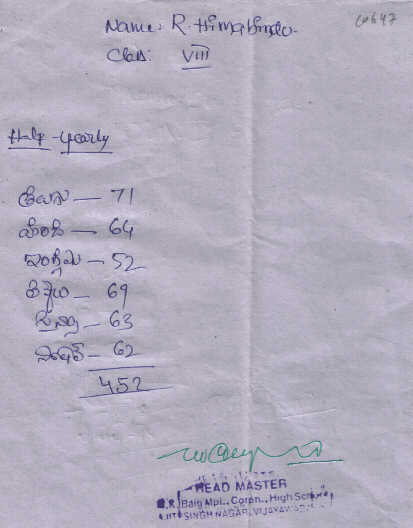 Name: R. Himabindu.
Class: VIII
Half-yearly
తెలుగు — 71
హిందీ — 64
ఇంగ్లీషు — 52
లెక్కలు — 69
సైన్సు — 63
సోషల్ — 62
452
HEAD MASTER
Baig Mpl., Corpn., High School
SINGH NAGAR, VIJAYAWADA